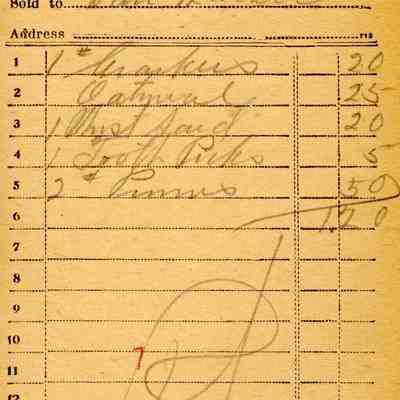 Sold to
Address
1 1 # Crackers 20
2 Oatmeal 25
3 1 20
4 1 Tooth Picks 5
5 2 # Prunes 50
6 1.20
7
8
9
10 7
11
12